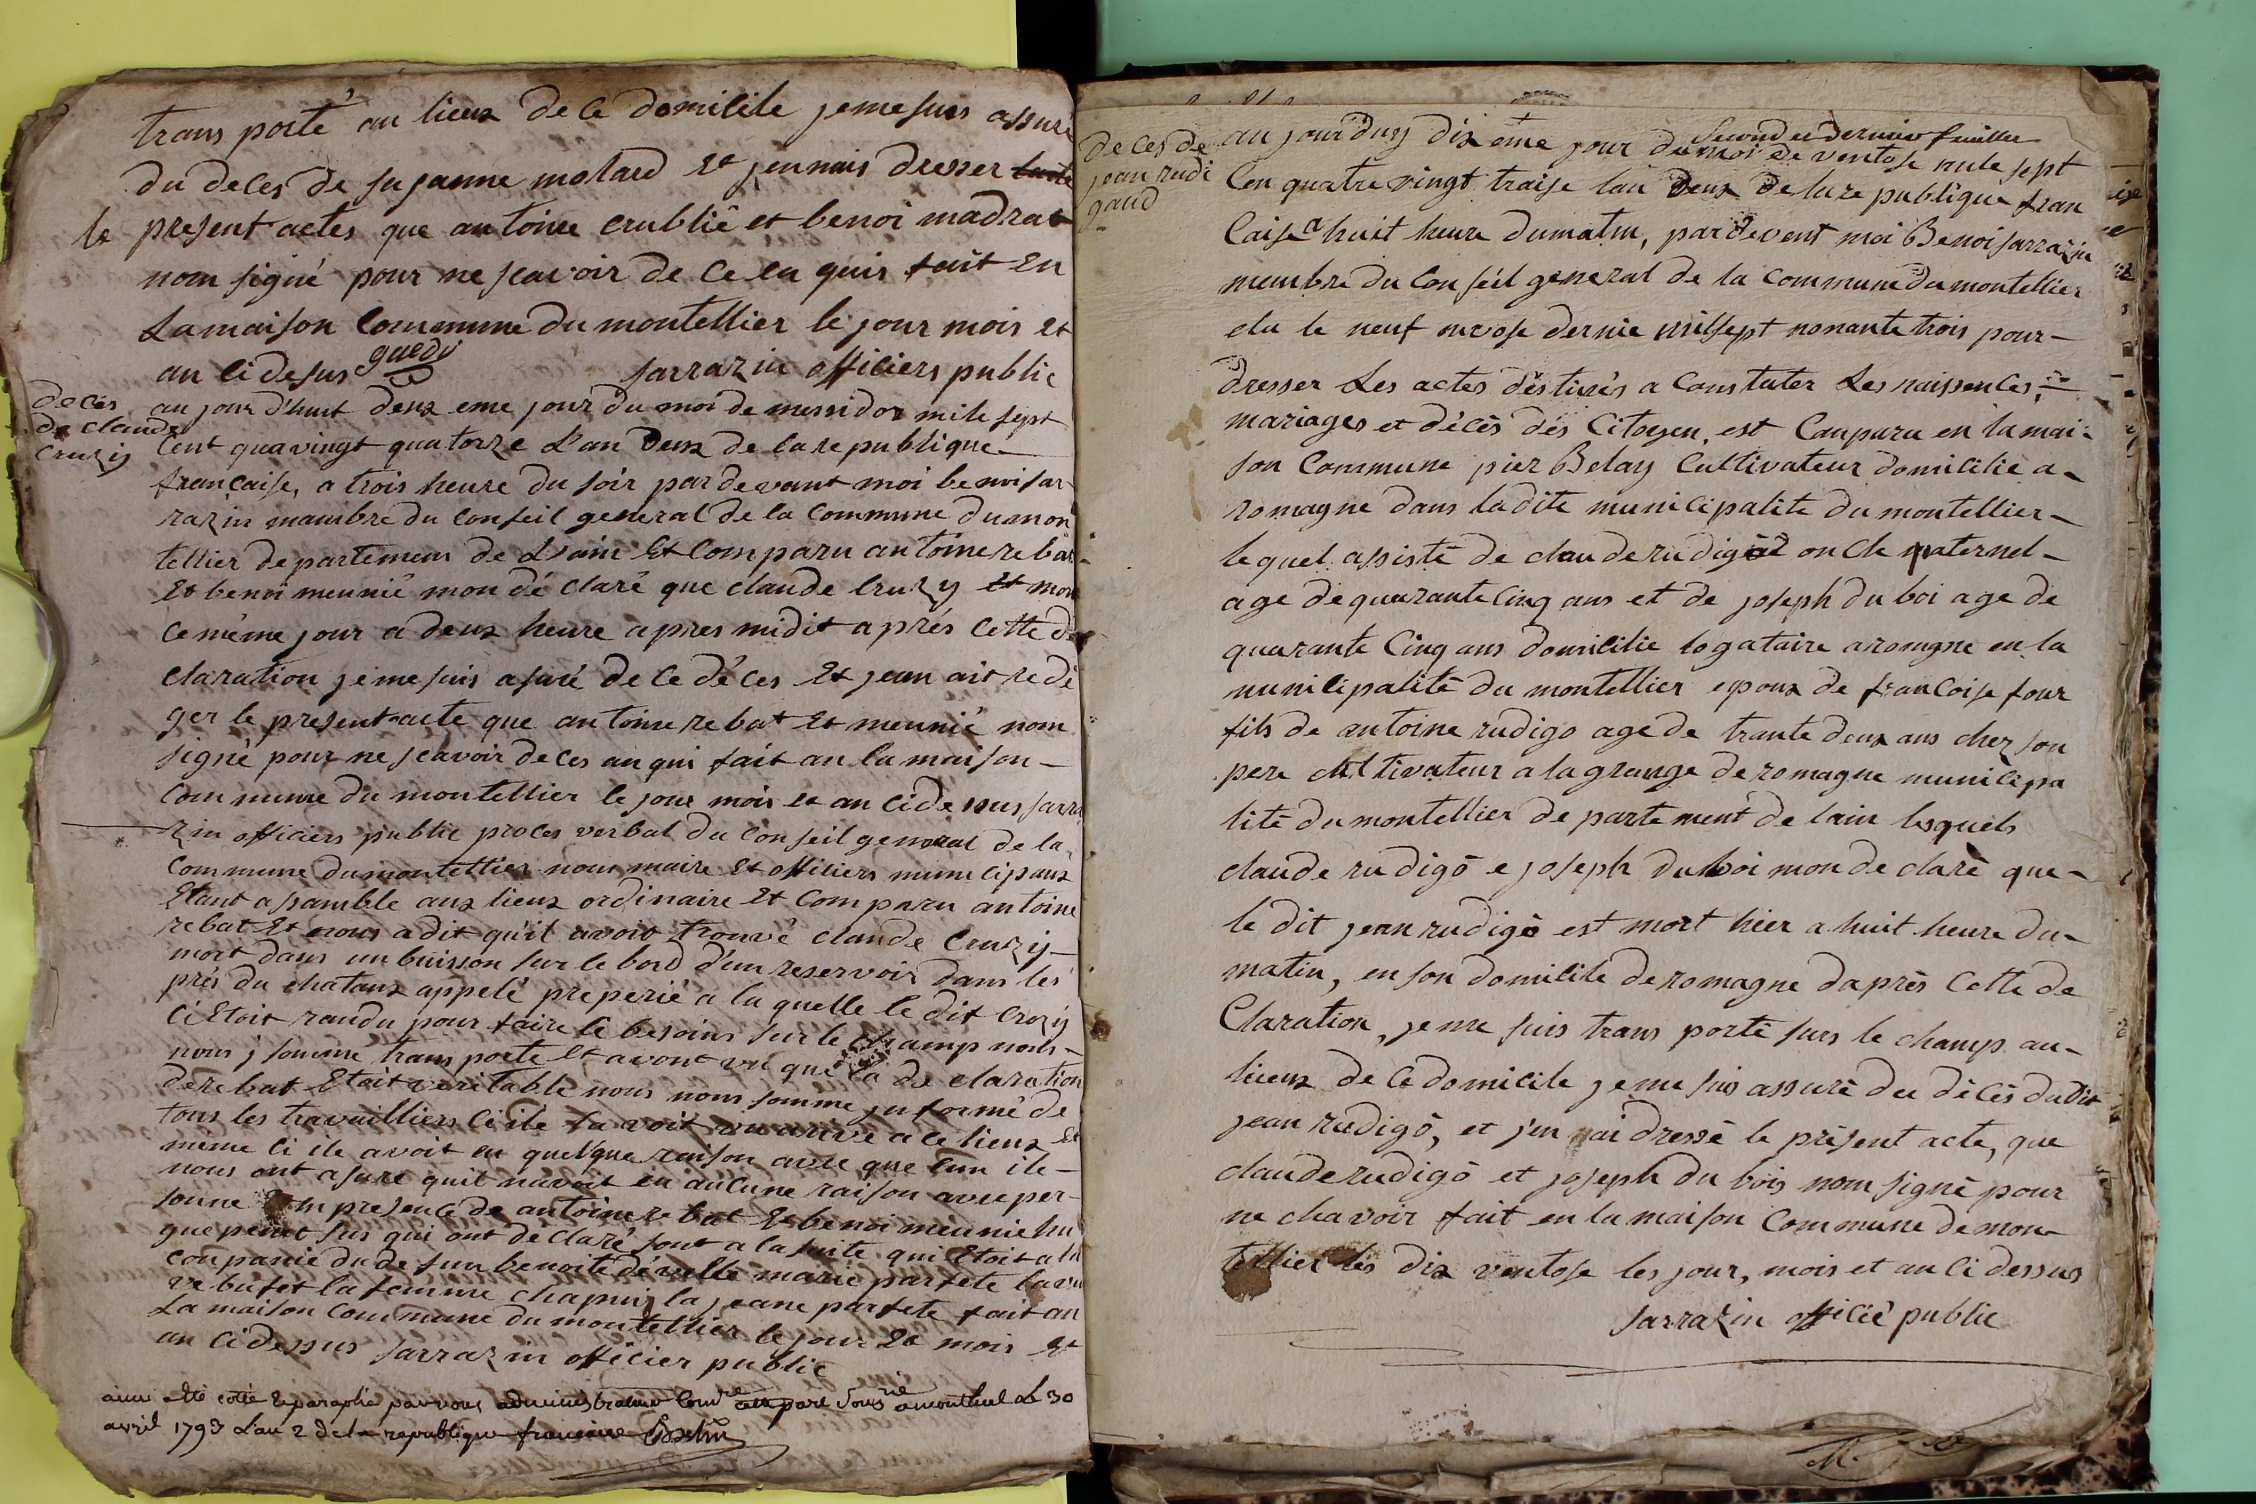 trans porté au lieux de ce domicile je me suis assuré
du deces de susanne molard et jennais dresser
le present actes que antoine crublié et benoi madra
nom signé pour ne scavoir de ce en quis fait en
La maison Commune du montellier le jour mois et
an cidesus
sarrazin officiers public
deces
de claude
cruzy
au jour d'huit deux eme jour du moi de messidor mile sept
Cent quavingt quatorze L'an Deux de la republique
française, a trois heure du soir par devant moi benoi sar
razin mambre du conseil general de la commune du mon
tellier departement de L'ain Et comparu antoine rebat
Et benoi meunié mon dé claré que claude cruzy et mort
ce même jour a deux heure apres midit aprés cette de
claration je me suis asuré de ce déces Et jean ait redi
ger le present acte que antoine rebat Et meunié nom
signé pour ne scavoir de ces an qui fait an la maison
Commune du montellier le jour mois et an cidessus sarra
zin officiers public proces verbal du conseil general de la
commune du montellier nous maire Et officiers municipaux
Etant assamble aux lieux ordinaire Et comparu antoine
rebat Et nous a dit qu'il avoit trouvé claude cruzy
mort dans un buisson sur le bord d'un reservoir dans les
prés du chataux appelé preperié a la quelle le dit crozy
ci Etoit randu pour faire ce besoins sur le champ nous
nous j somme trans porte Et avont vu que la de claration
de rebat Etait veritable nous nous somme jnformé de
tous les travailliers ci ile la voit vu arivé a ce lieux Et
meme ci ile avoit eu quelque raison avec que cun ile
nous ont asuré quil navoit eu aucune raison avec per
sonne En presence de antoine rebat Et benoi meunié
qui ont declaré sont a la suite qui Etoit a la
conpanie benoite marie parfete
la femme chapuis la jeane parfete fait an
La maison commune du montellier le jour Et mois Et
an cidessus sarrazin officier public
a été cotté & paraphé par nous administrateur a montluel le 30
avril 1793 L'an 2 de la republique francaise
deces de
jean rudi
gaud
second et dernier feuillet
au jourduy dix eme jour du moi de ventose mile sept
Cen quatre vingt traise lan Deux de la re publique fran
Caise a huit heure dumatin, par devent moi Benoi sarrazin
membre du Conséil general de la commune du montellier
elu le neuf nivose dernie milsept nonante trois pour
dresser Les actes déstinés a Constater Les naissences,
mariages et décès dés Citoyen, est Conparu en la mai
son Commune pier Belay Cultivateur domicilie a
romagne dans la dite municipalité du montellier
lequel assisté de claude rudigod oncle paternel
age de quarante cinq ans et de joseph du boi age de
quarante Cinq ans domicilie logataire aromagne en la
municipalité du montellier epoux de francoise four
fils de antoine rudigo age de trante deux ans chez son
pere cultivateur a la grange de romagne municipa
lité du montellier de parte ment de lain lesquels
claude rudigô e joseph du boi mon de claré que
le dit jean rudigô est mort hier a huit heure du
matin, en son domicile de romagne daprès Cette de
Claration, je me suis trans porté surs le champ au
lieux de ce domicile je me suis assuré du décés dudit
jean rudigô, et j'en nai dressé le présent acte, que
claude rudigô et joseph du bois nom signé pour
ne chavoir fait en la maison Commune de mon
tellier lés dix ventose les jour, mois et an ci dessus
sarrazin officié public